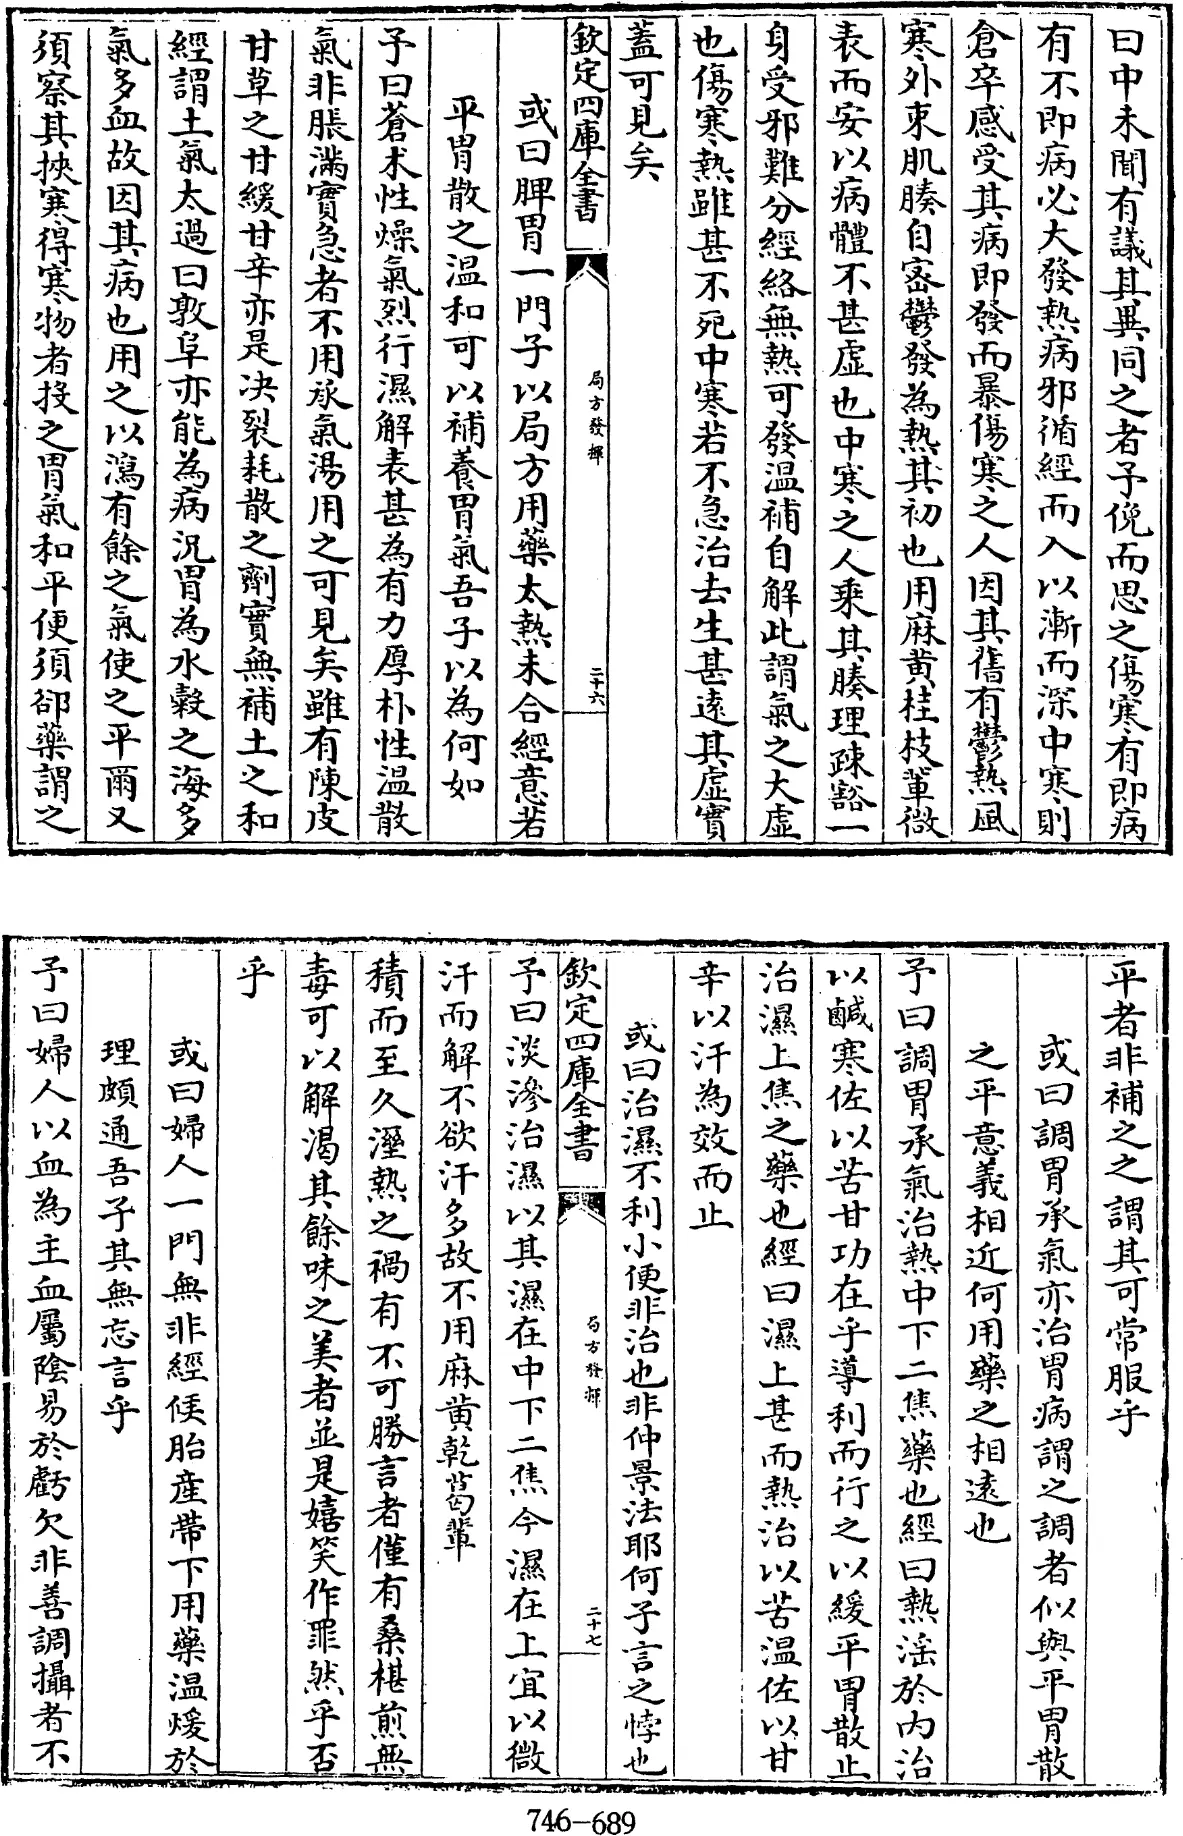 曰中未聞有議其異同之者予俛而思之傷寒有即病
有不即病必大發熱病邪循經而入以漸而深中寒則
倉卒感受其病即發而暴傷寒之人因其舊有鬱熱風
寒外束肌腠自宻鬱發為熱其初也用麻黄桂枝輩微
表而安以病體不甚虛也中寒之人乗其腠理疎豁一
身受邪難分經絡無熱可發温補自解此謂氣之大虛
也傷寒熱雖甚不死中寒若不急治去生甚遠其虛實
蓋可見矣
欽定四庫全書
局方發揮
二十六
或曰脾胃一門子以局方用藥太熱未合經意若
平胃散之温和可以補養胃氣吾子以為何如
予曰蒼术性燥氣烈行濕解表甚為有力厚朴性温散
氣非脹滿實急者不用承氣湯用之可見矣雖有陳皮
甘草之甘緩甘辛亦是决裂耗散之劑實無補土之和
經謂土氣太過曰敦阜亦能為病況胃為水穀之海多
氣多血故因其病也用之以瀉有餘之氣使之平爾又
須察其挾寒得寒物者投之胃氣和平便須郤藥謂之
平者非補之之謂其可常服乎
或曰調胃承氣亦治胃病謂之調者似與平胃散
之平意義相近何用藥之相遠也
予曰調胃承氣治熱中下二焦藥也經曰熱滛於内治
以鹹寒佐以苦甘功在乎導利而行之以緩平胃散止
治濕上焦之藥也經曰濕上甚而熱治以苦温佐以甘
辛以汗為效而止
或曰治濕不利小便非治也非仲景法耶何子言之悖也
欽定四庫全書
局方發揮
二十七
予曰淡滲治濕以其濕在中下二焦今濕在上宜以微
汗而解不欲汗多故不用麻黄乾葛輩
積而至久溼熱之禍有不可勝言者僅有桑椹煎無
毒可以解渴其餘味之美者並是嬉笑作罪然乎否
乎
或曰婦人一門無非經候胎産帶下用藥温煖於
理頗通吾子其無忘言乎
予曰婦人以血為主血屬陰易於虧欠非善調攝者不
746-689